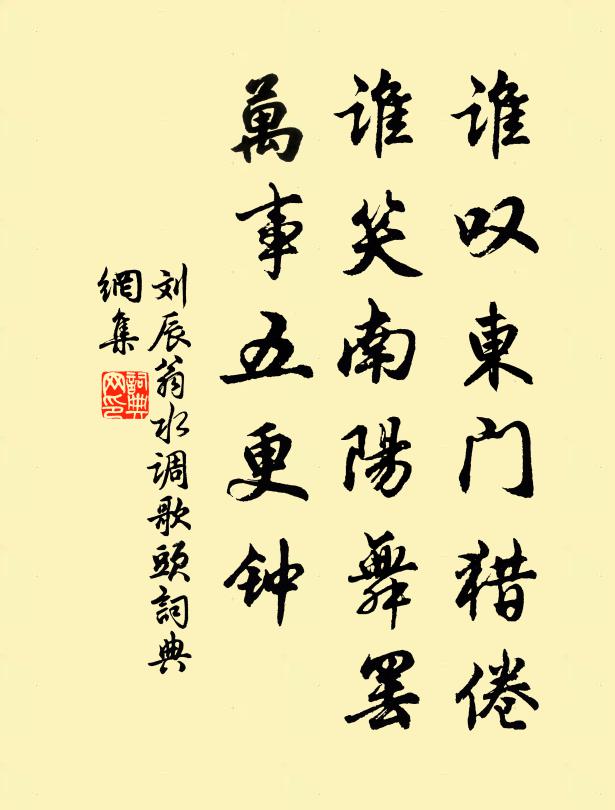 谁叹東门猎倦
谁笑南陽舞罢
萬事五更钟
刘辰翁水调歌頭詞典
網集
詞典
网印